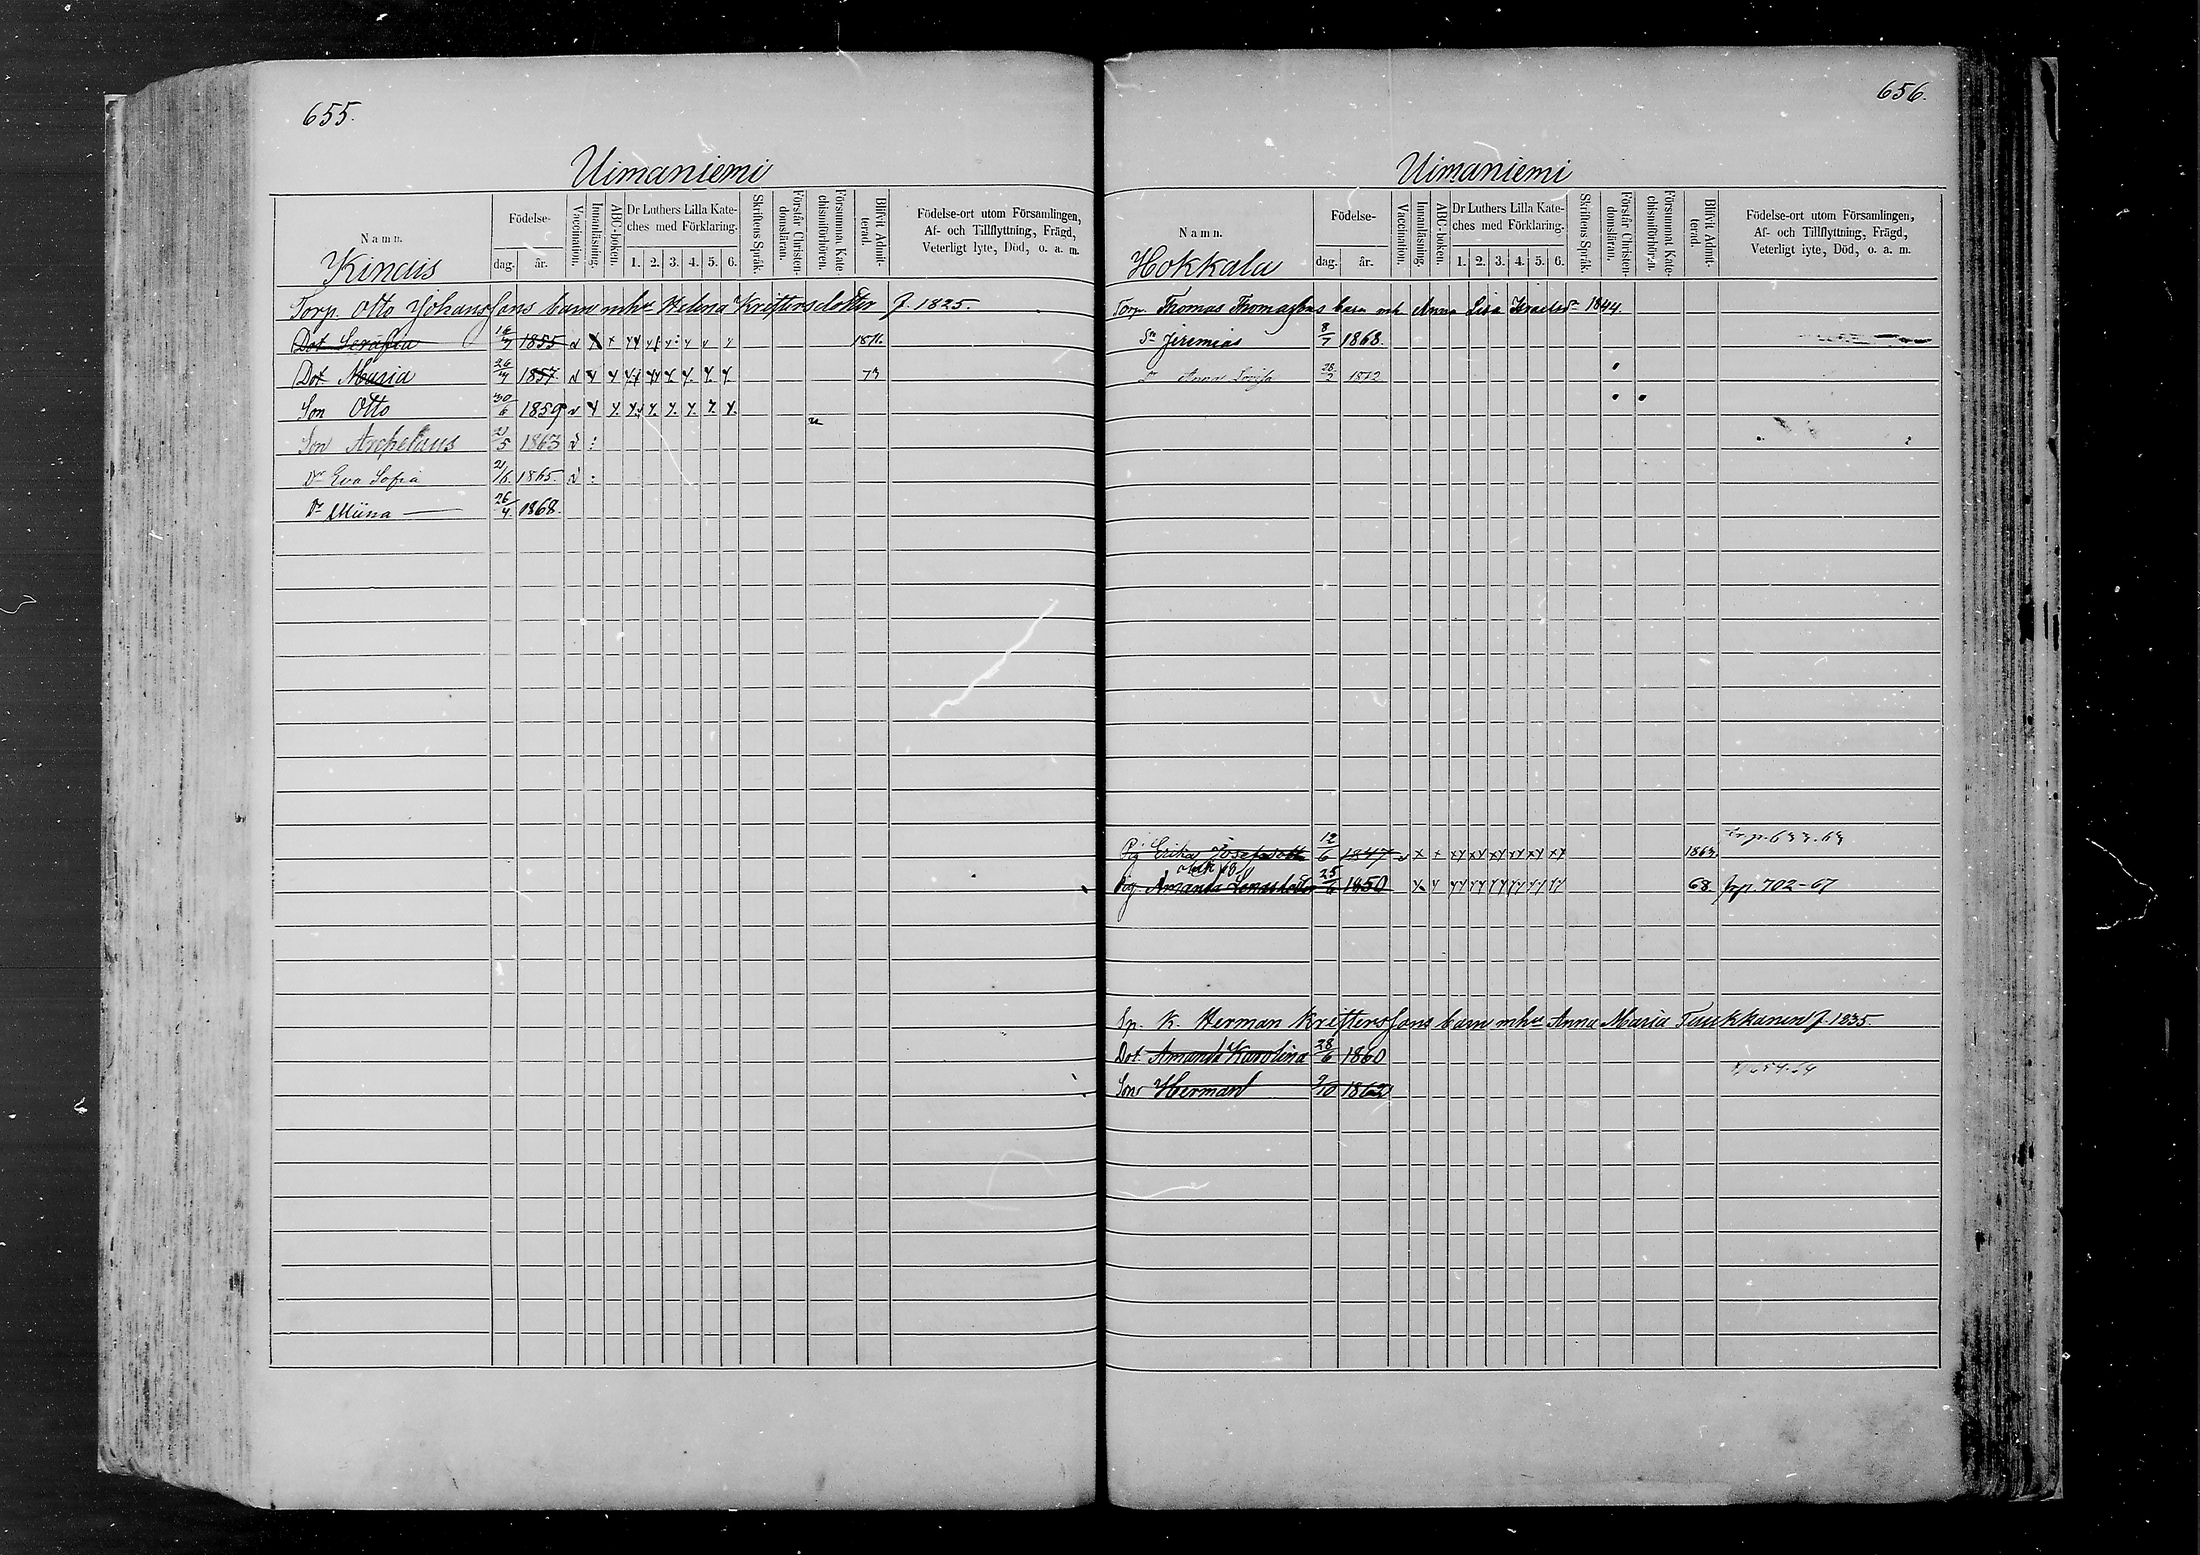 655.
Uimaniemi
Namn.
Födelse-
dag.
år.
Vaccination.
Innanläsning.
ABC-boken.
Dr Luthers Lilla Kate-
ches med Förklaring.
1. 2. 3. 4. 5. 6.
Skriftens Språk.
Förstår Christen-
domsläran.
Försummat Kate-
chismiförhören.
Blifvit Admit-
terad.
Födelse-ort utom Församlingen,
Af- och Tillflyttning, Frägd,
Veterligt lyte, Död, o. a. m.
Kindis
Torp. Otto Johanssons barn mhu Helena Kristersdotter f. 1825.
Dot Serafia 1855 1871.
Dot Maria 26/4 1857 73
Son Otto 30/6 1859
Son Archelaus 21/5 1863
Dr Eva Sofia 21/6. 1865.
Dr Miina 26/4. 1868.
656.
Uimaniemi
Namn.
Födelse-
dag.
år.
Vaccination.
Innanläsning.
ABC-boken.
Dr Luthers Lilla Kate-
ches med Förklaring.
1. 2. 3. 4. 5. 6.
Skriftens Språk.
Förstår Christen-
domsläran.
Försummat Kate-
chismiförhören.
Blifvit Admit-
terad.
Födelse-ort utom Församlingen,
Af- och Tillflyttning, Frägd,
Veterligt lyte, Död, o. a. m.
Hokkala
Torp. Thomas Thomassons barn mh Anna Lisa Israelsd. 1844.
Sn Jeremias 8/7 1868.
Dr Anna Lovisa 1872
Pig Erika Josefsdott 12/6 1847 1863.
Pig. Amanda 25/6 1850 68 frp. 702-67
Sp. K. Herman Kristerssons barn mhu Anna Maria Taukkanen f. 1835.
Dot. Amanda Karolina 28/6 1860
Son Herman 9/10 1862